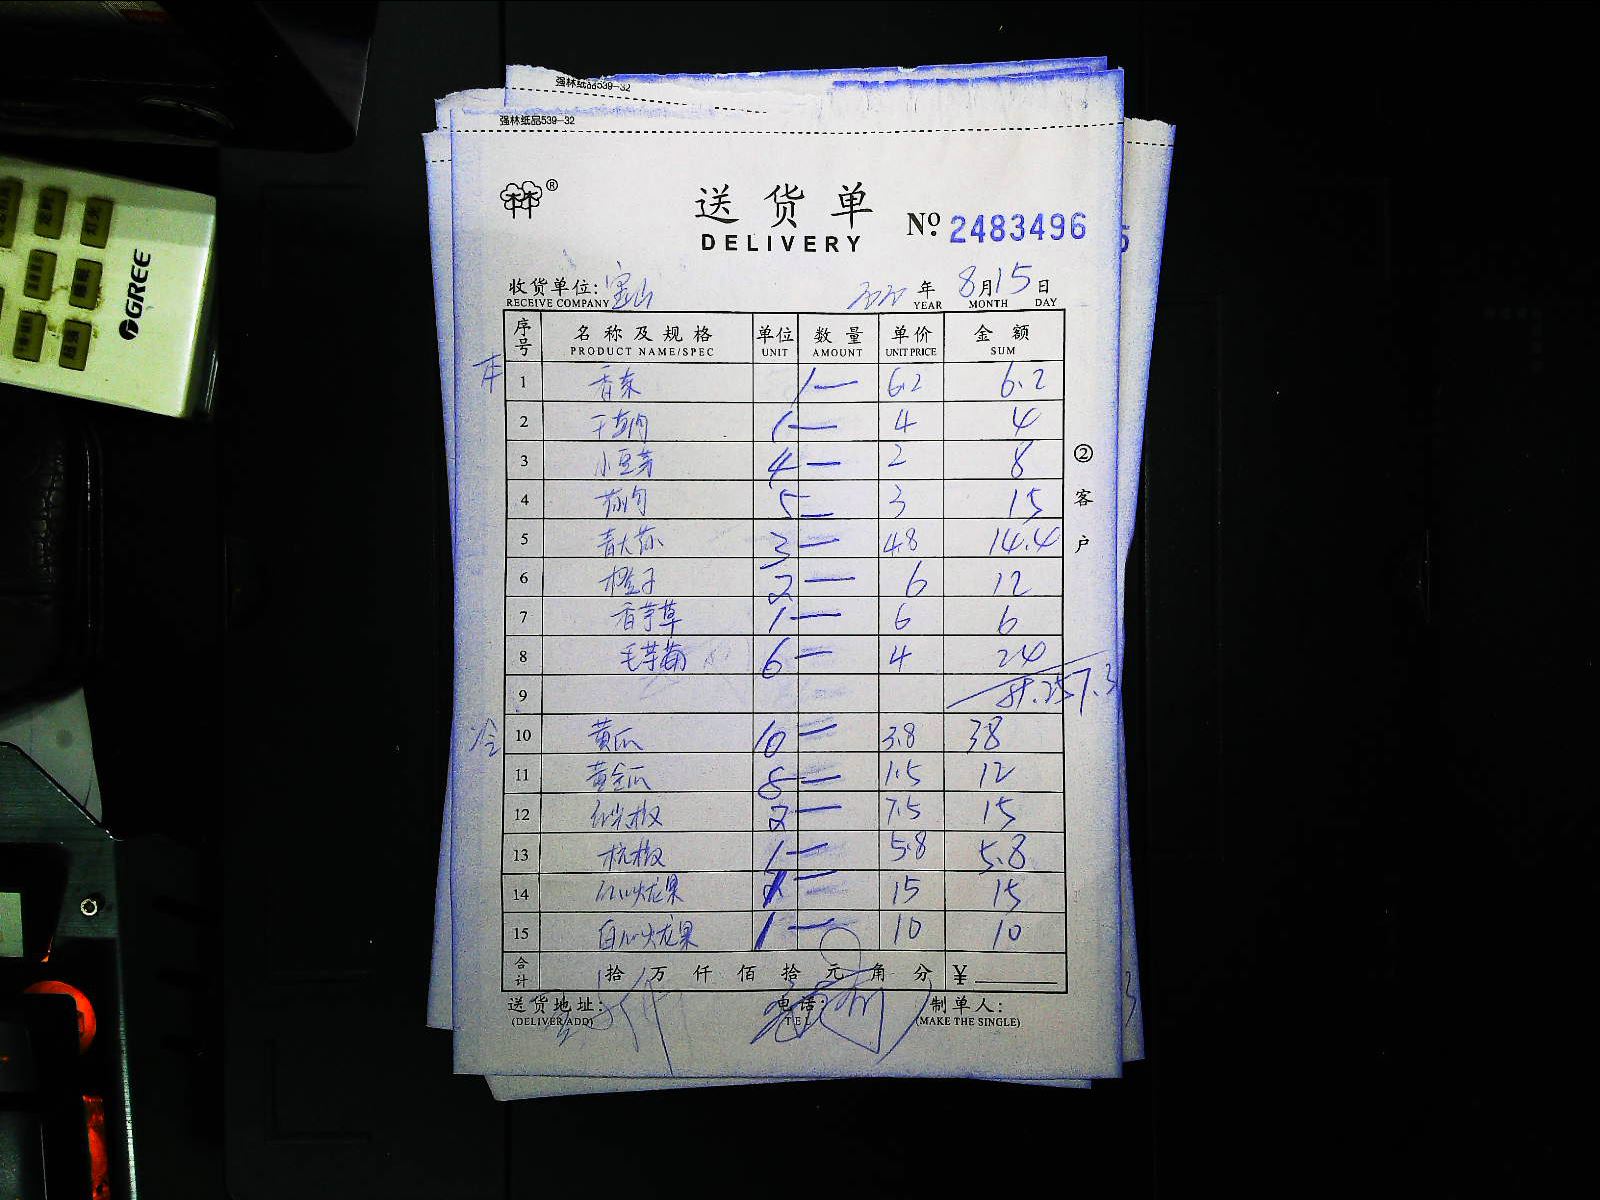 强林纸品539-32
强林纸品539-32
®
送货单
DELIVERY
№ 2483496
收货单位: 宝山
RECEIVE COMPANY
2020 年 8月15日
YEAR MONTH DAY
序号 名称及规格 单位 数量 单价 金额
PRODUCT NAME/SPEC UNIT AMOUNT UNIT PRICE SUM
1 香菜 1— 6.2 6.2
2 1— 4 4
3 小豆芽 4— 2 8
4 5— 3 15
5 3— 4.8 14.4
6 橙子 2— 6 12
7 香芋草 1— 6 6
8 6— 4 24
9
10 黄瓜 10— 3.8 38
11 黄金瓜 8— 1.5 12
12 红尖椒 2— 7.5 15
13 杭椒 1— 5.8 5.8
14 红心火龙果 15 15
15 白心火龙果 1— 10 10
合计 拾 万 仟 佰 拾 元 角 分 ¥
送货地址: 电话: 制单人:
(DELIVER ADD) TEL (MAKE THE SINGLE)
② 客户
GREE